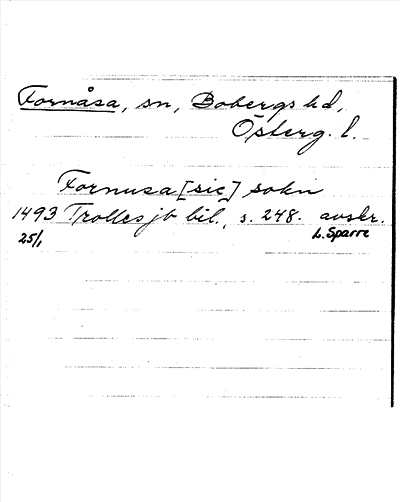 Fornåsa, sn, Bobergs hd,
Österg. l.
Fornusa [sic] sokn
1493 Trolles jb bil., s. 248. avskr.
25/1 L. Sparre